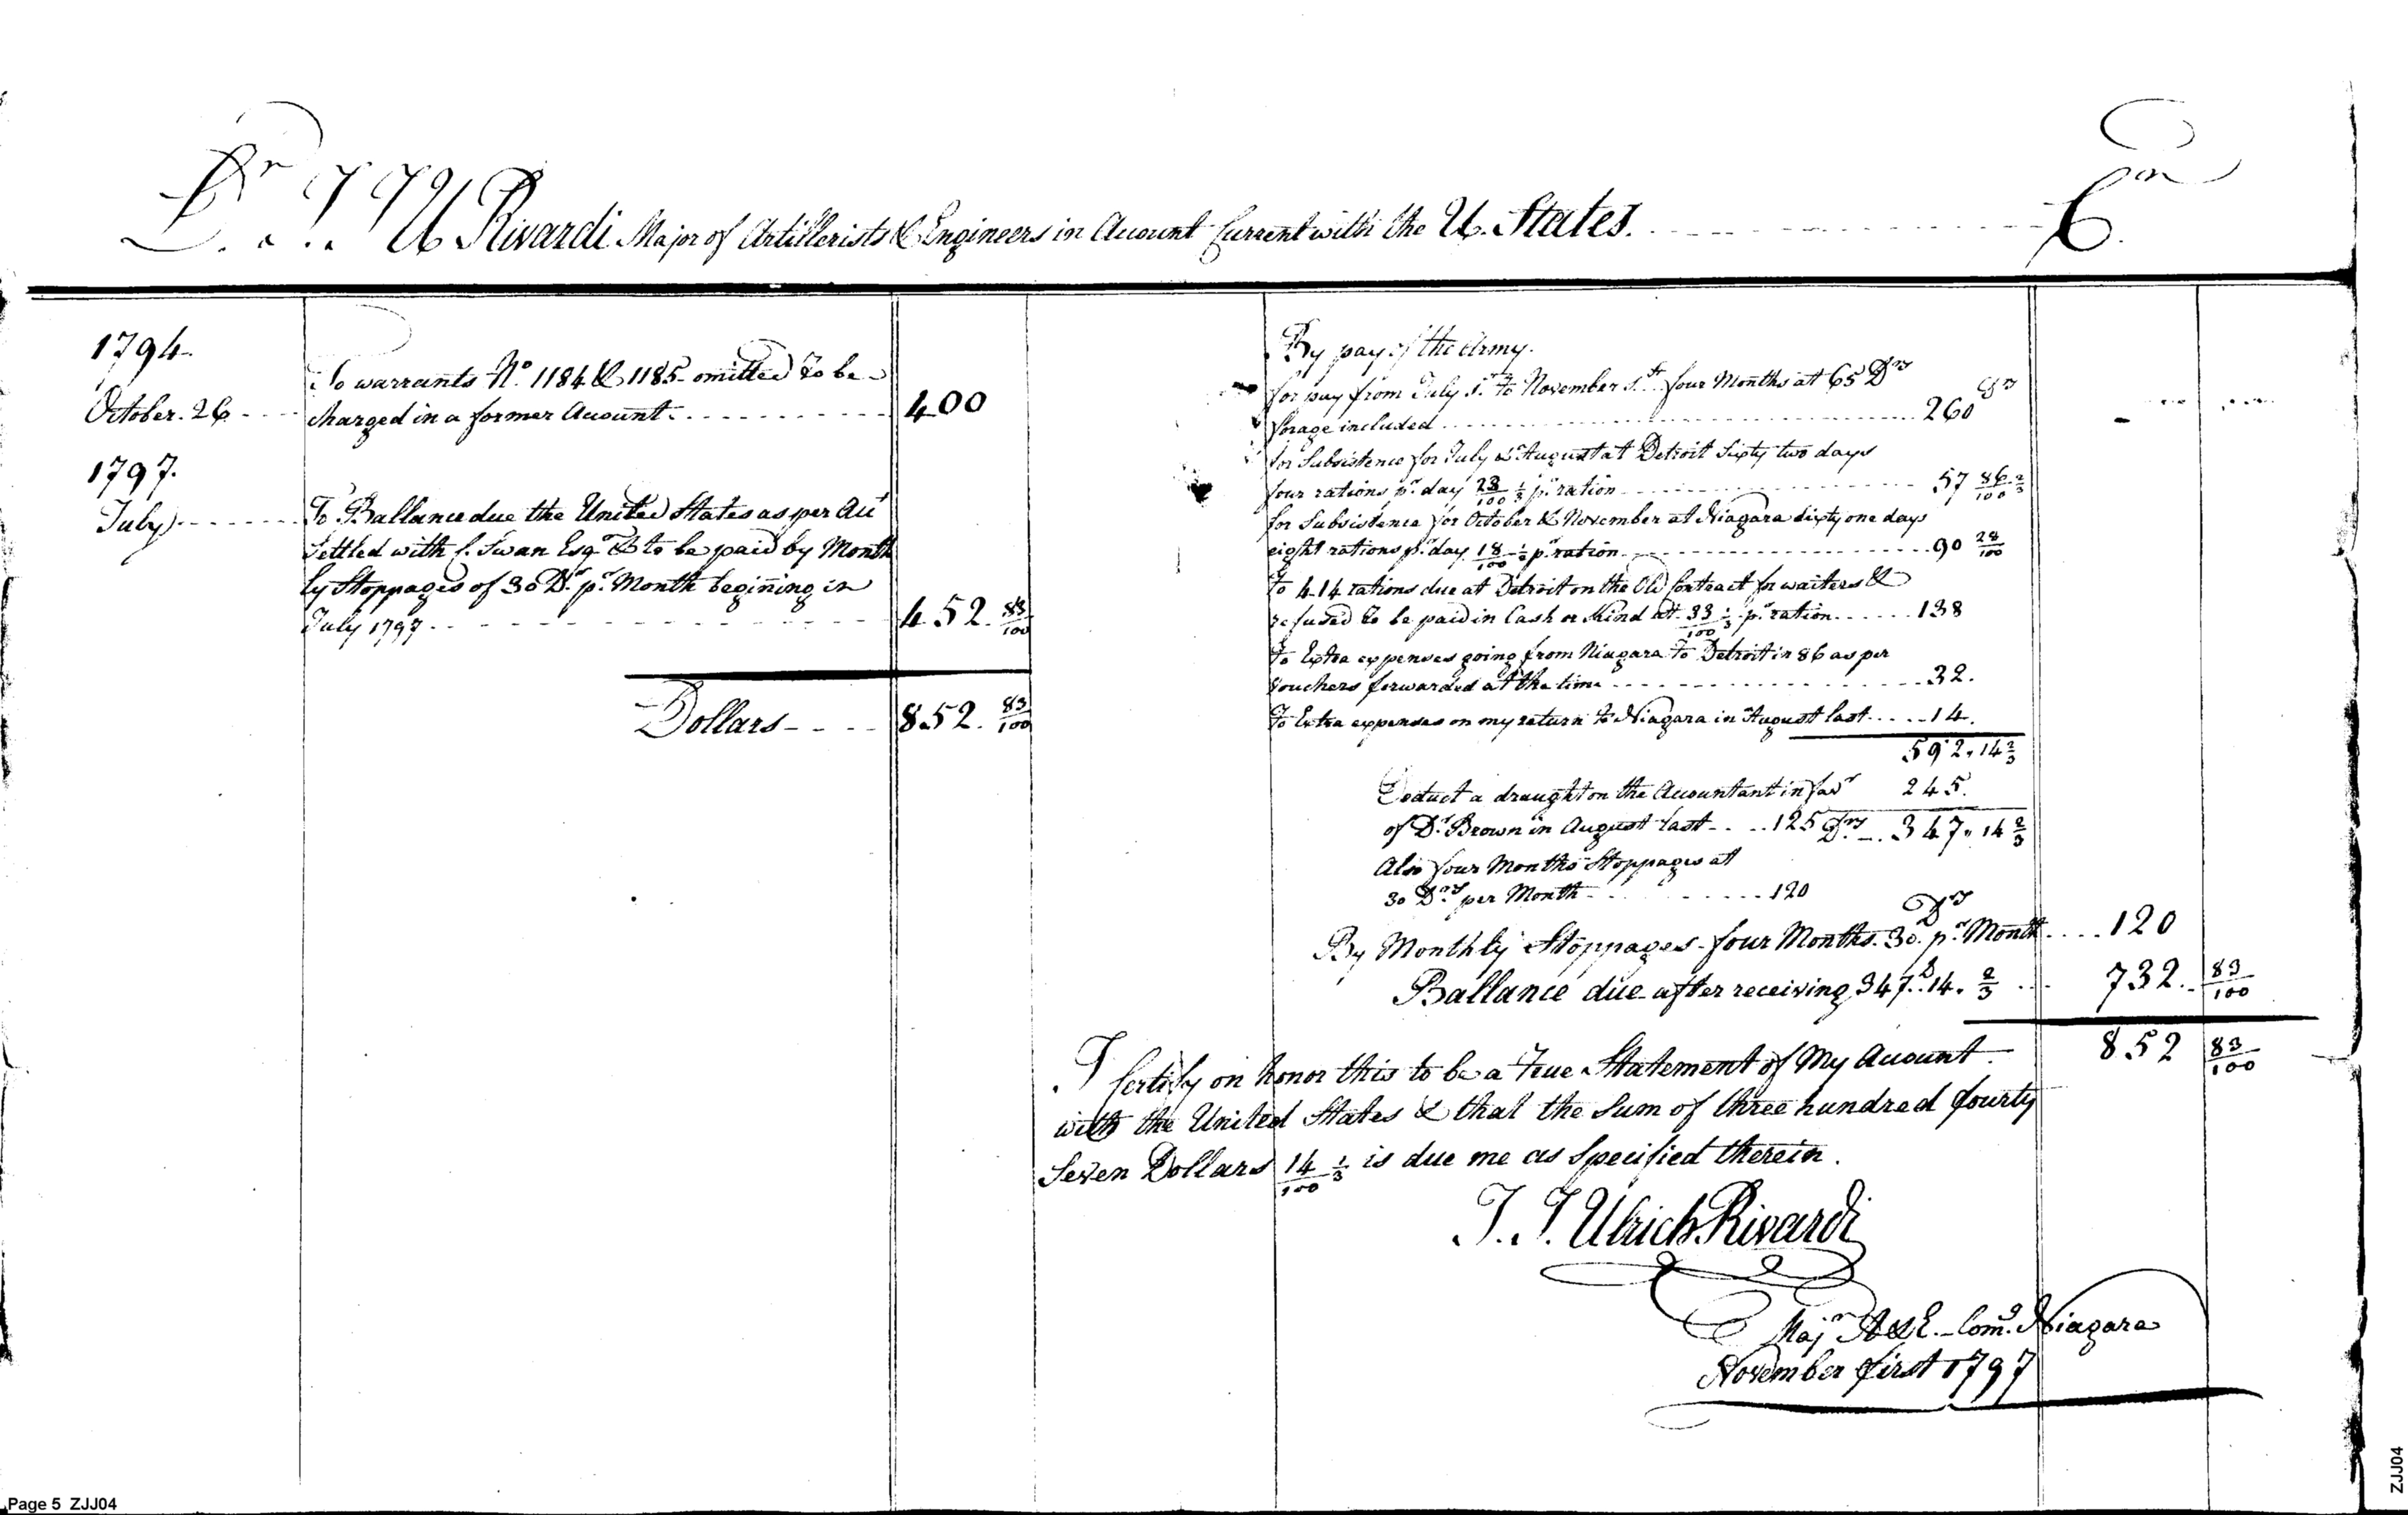 Dr J. J. U Rivardi Major of Artillerists & Engineers in Account Current with the U. States. Cr
1794.
October. 26
To warrants No. 1184 & 1185 omitted to be
charged in a former Account. 400
1797.
July
To Ballance due the United States as per Au
Settled with C. Swan Esqr. & to be paid by Month
ly Stoppages of 30 Dr. pr. Month begining in
July 1797 452. 83/100
Dollars 852. 83/100
By pay of the Army.
for pay from July 1st. to November 1st. four Months at 65 Drs
forage included 260
for Subsistence for July & August at Detroit Sixty two days
four rations pr. day 23/100 1/3 pr. ration 57 86/100 2/3
for Subsistence for October & November at Niagara Sixty one days
eight rations pr. day 18/100 1/2 pr. ration 90 28/100
To 414 rations due at Detroit on the Old Contract for waiters &
refused to be paid in Cash or Kind at 33/100 1/3 pr. ration 138
To Extra expenses going from Niagara to Detroit in 86 as per
Vouchers forwarded at the time 32.
To Extra expenses on my return to Niagara in August last 14.
592. 14 2/3
Deduct a draught on the Accountant in favr 245.
of Dr. Brown in August last 125 Drs 347. 14 2/3
Also four Months Stoppages at
30 Drs per Month 120
By Monthly Stoppages four Months. 30 Drs. pr. Month 120
Ballance due after receiving 347.D 14. 2/3 732. 83/100
852 83/100
I Certify on honor this to be a True Statement of My Account
with the United States & that the Sum of three hundred fourty
Seven Dollars 14/100 1/3 is due me as Specified therein.
J. J. Ulrich Rivardi
Majr A & E. Comd. Niagara
November first 1797
Page 5 ZJJ04
ZJJ04